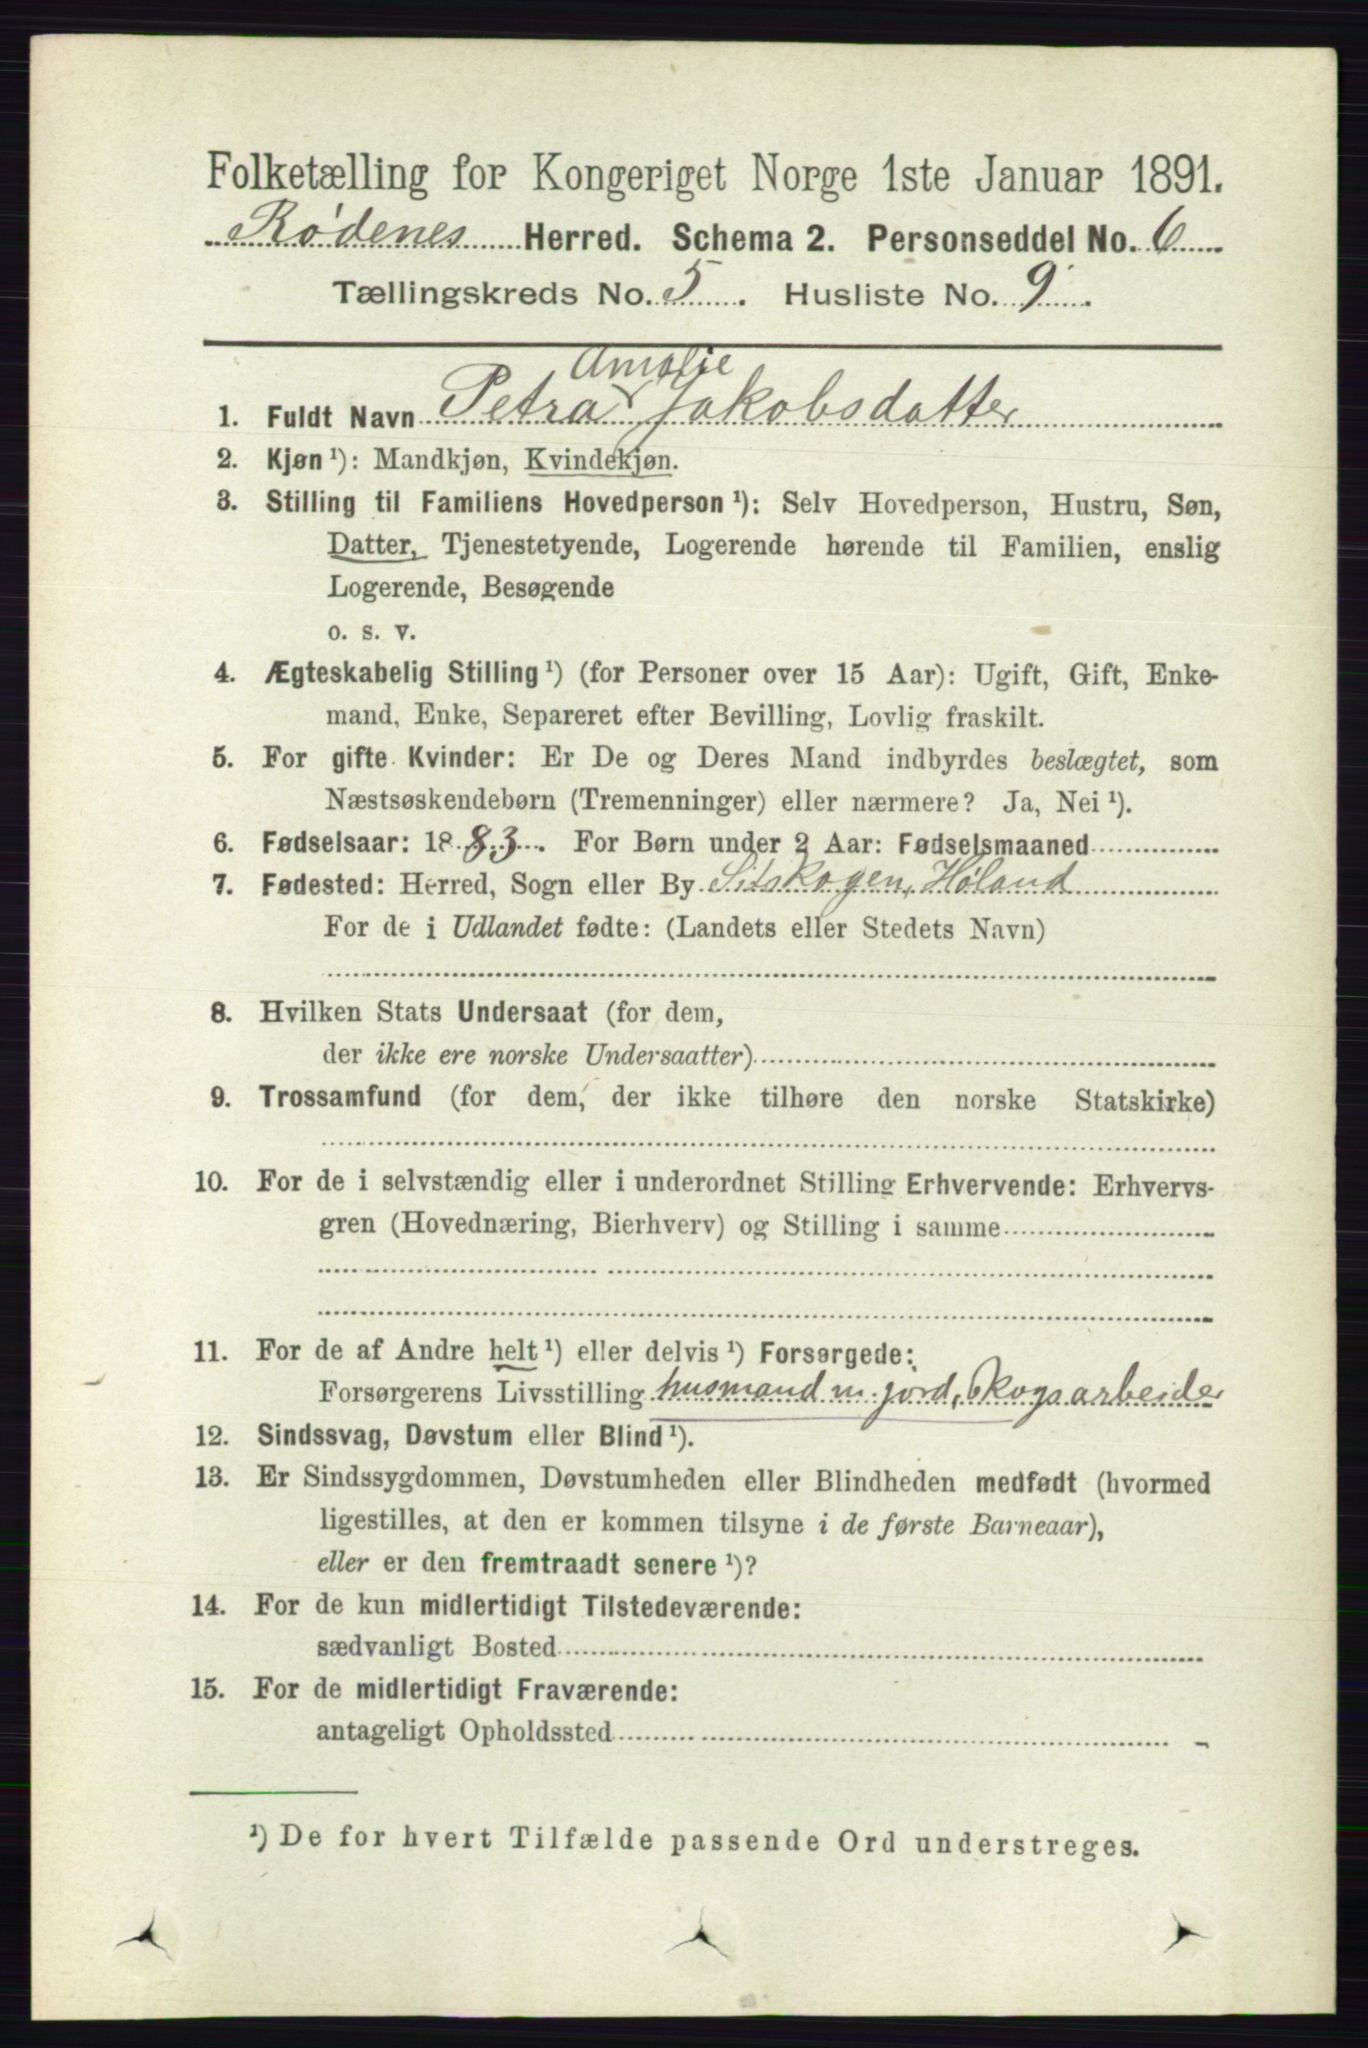 Folketælling for Kongeriget Norge 1ste Januar 1891.
Rødenes Herred. Schema 2. Personseddel No. 6
Tællingskreds No. 5. Husliste No. 9.
Amalie
1. Fuldt Navn Petra Jakobsdatter
2. Kjøn ¹): Mandkjøn, Kvindekjøn.
3. Stilling til Familiens Hovedperson ¹): Selv Hovedperson, Hustru, Søn,
Datter, Tjenestetyende, Logerende hørende til Familien, enslig
Logerende, Besøgende
o. s. v.
4. Ægteskabelig Stilling ¹) (for Personer over 15 Aar): Ugift, Gift, Enke-
mand, Enke, Separeret efter Bevilling, Lovlig fraskilt.
5. For gifte Kvinder: Er De og Deres Mand indbyrdes beslægtet, som
Næstsøskendebørn (Tremenninger) eller nærmere? Ja, Nei ¹).
6. Fødselsaar: 1883. For Børn under 2 Aar: Fødselsmaaned
7. Fødested: Herred, Sogn eller By Sitskogen, Høland
For de i Udlandet fødte: (Landets eller Stedets Navn)
8. Hvilken Stats Undersaat (for dem,
der ikke ere norske Undersaatter)
9. Trossamfund (for dem, der ikke tilhøre den norske Statskirke)
10. For de i selvstændig eller i underordnet Stilling Erhvervende: Erhvervs-
gren (Hovednæring, Bierhverv) og Stilling i samme
11. For de af Andre helt ¹) eller delvis ¹) Forsørgede:
Forsørgerens Livsstilling husmand m. jord, skogsarbeider
12. Sindssvag, Døvstum eller Blind ¹).
13. Er Sindssygdommen, Døvstumheden eller Blindheden medfødt (hvormed
ligestilles, at den er kommen tilsyne i de første Barneaar),
eller er den fremtraadt senere ¹)?
14. For de kun midlertidigt Tilstedeværende:
sædvanligt Bosted
15. For de midlertidigt Fraværende:
antageligt Opholdssted
¹) De for hvert Tilfælde passende Ord understreges.